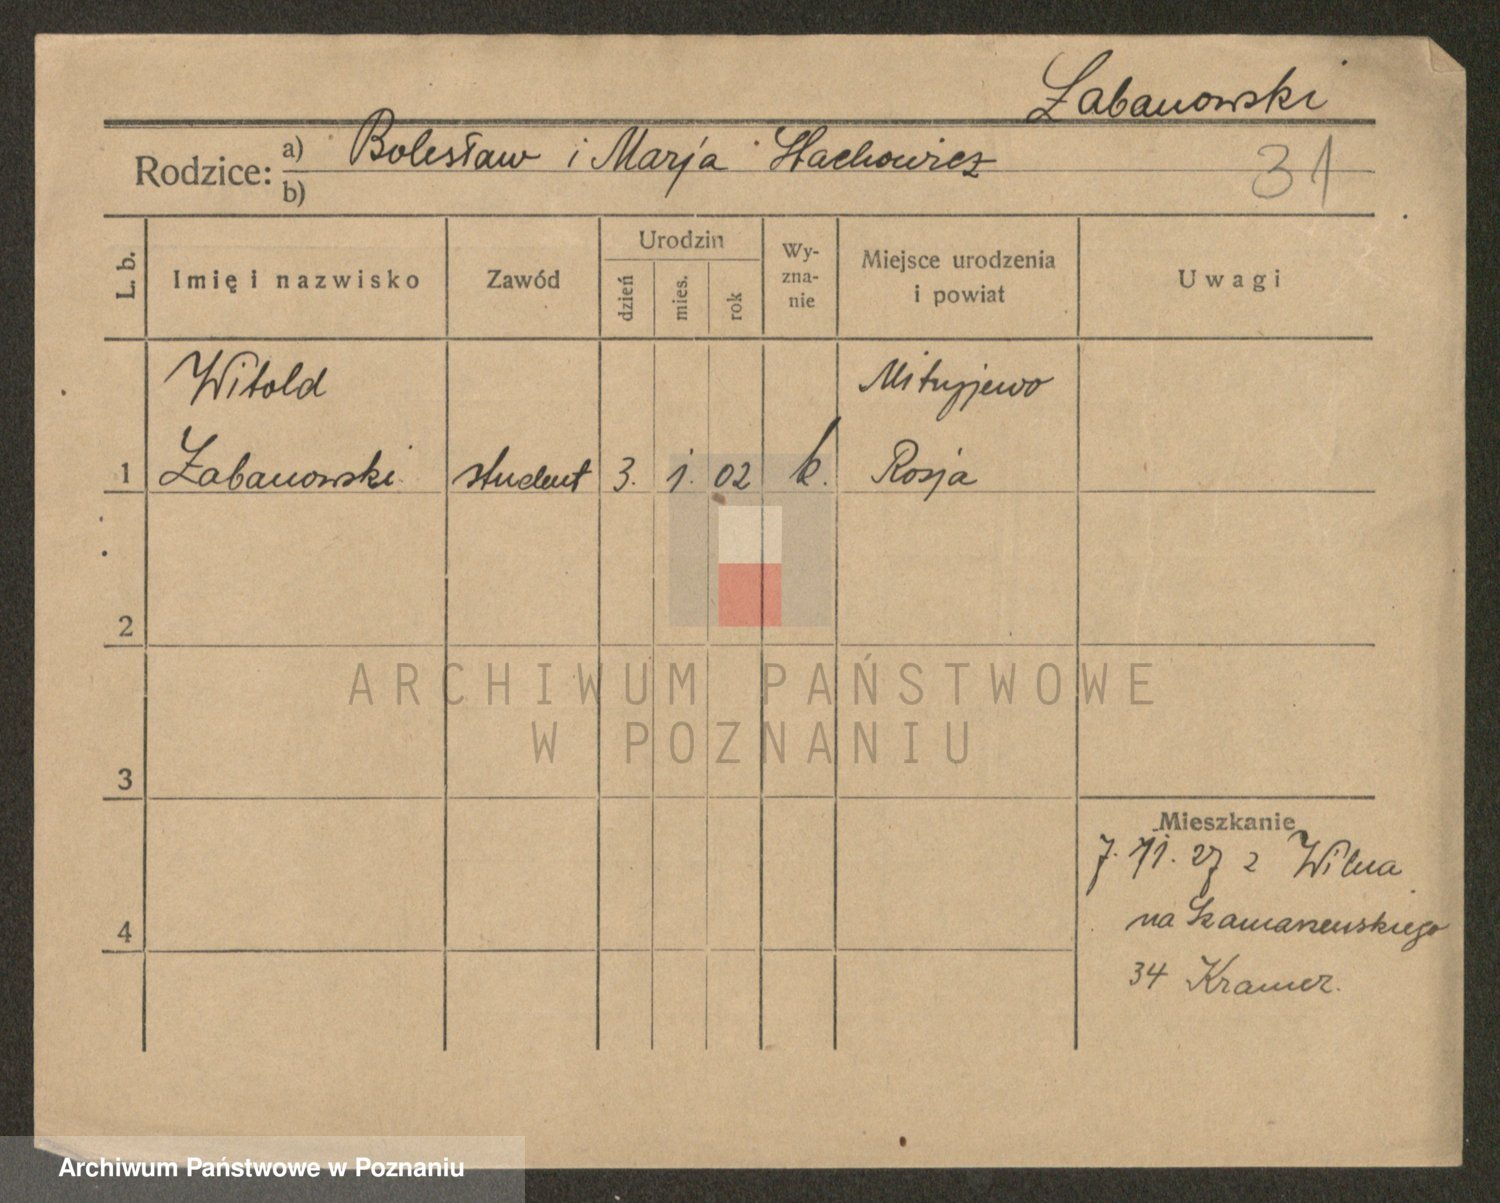 Żabanowski
Rodzice: a) Bolesław i Marja Stachowicz
b)
31
L. b. Imię i nazwisko Zawód Urodzin dzień mies. rok Wy-zna-nie Miejsce urodzenia i powiat Uwagi
Witold
1 Żabanowski student 3. 1. 02 k. Rosja
2
3
4
Mieszkanie
7. 11. 27 z Wilna
na
34 Kramer.
ARCHIWUM PAŃSTWOWE
W POZNANIU
Archiwum Państwowe w Poznaniu